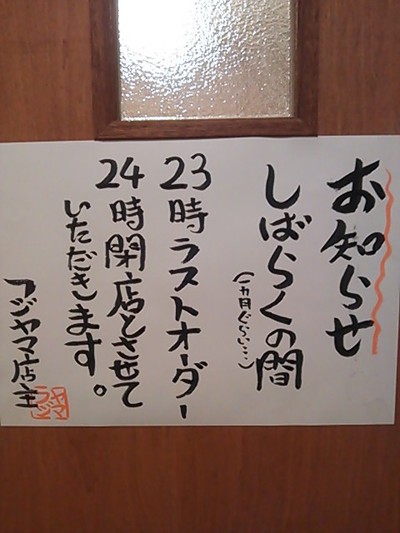 お知らせ
しばらくの間
(一カ月ぐらい…)
23時ラストオーダー
24時閉店とさせて
いただきます。
フジヤマ店主